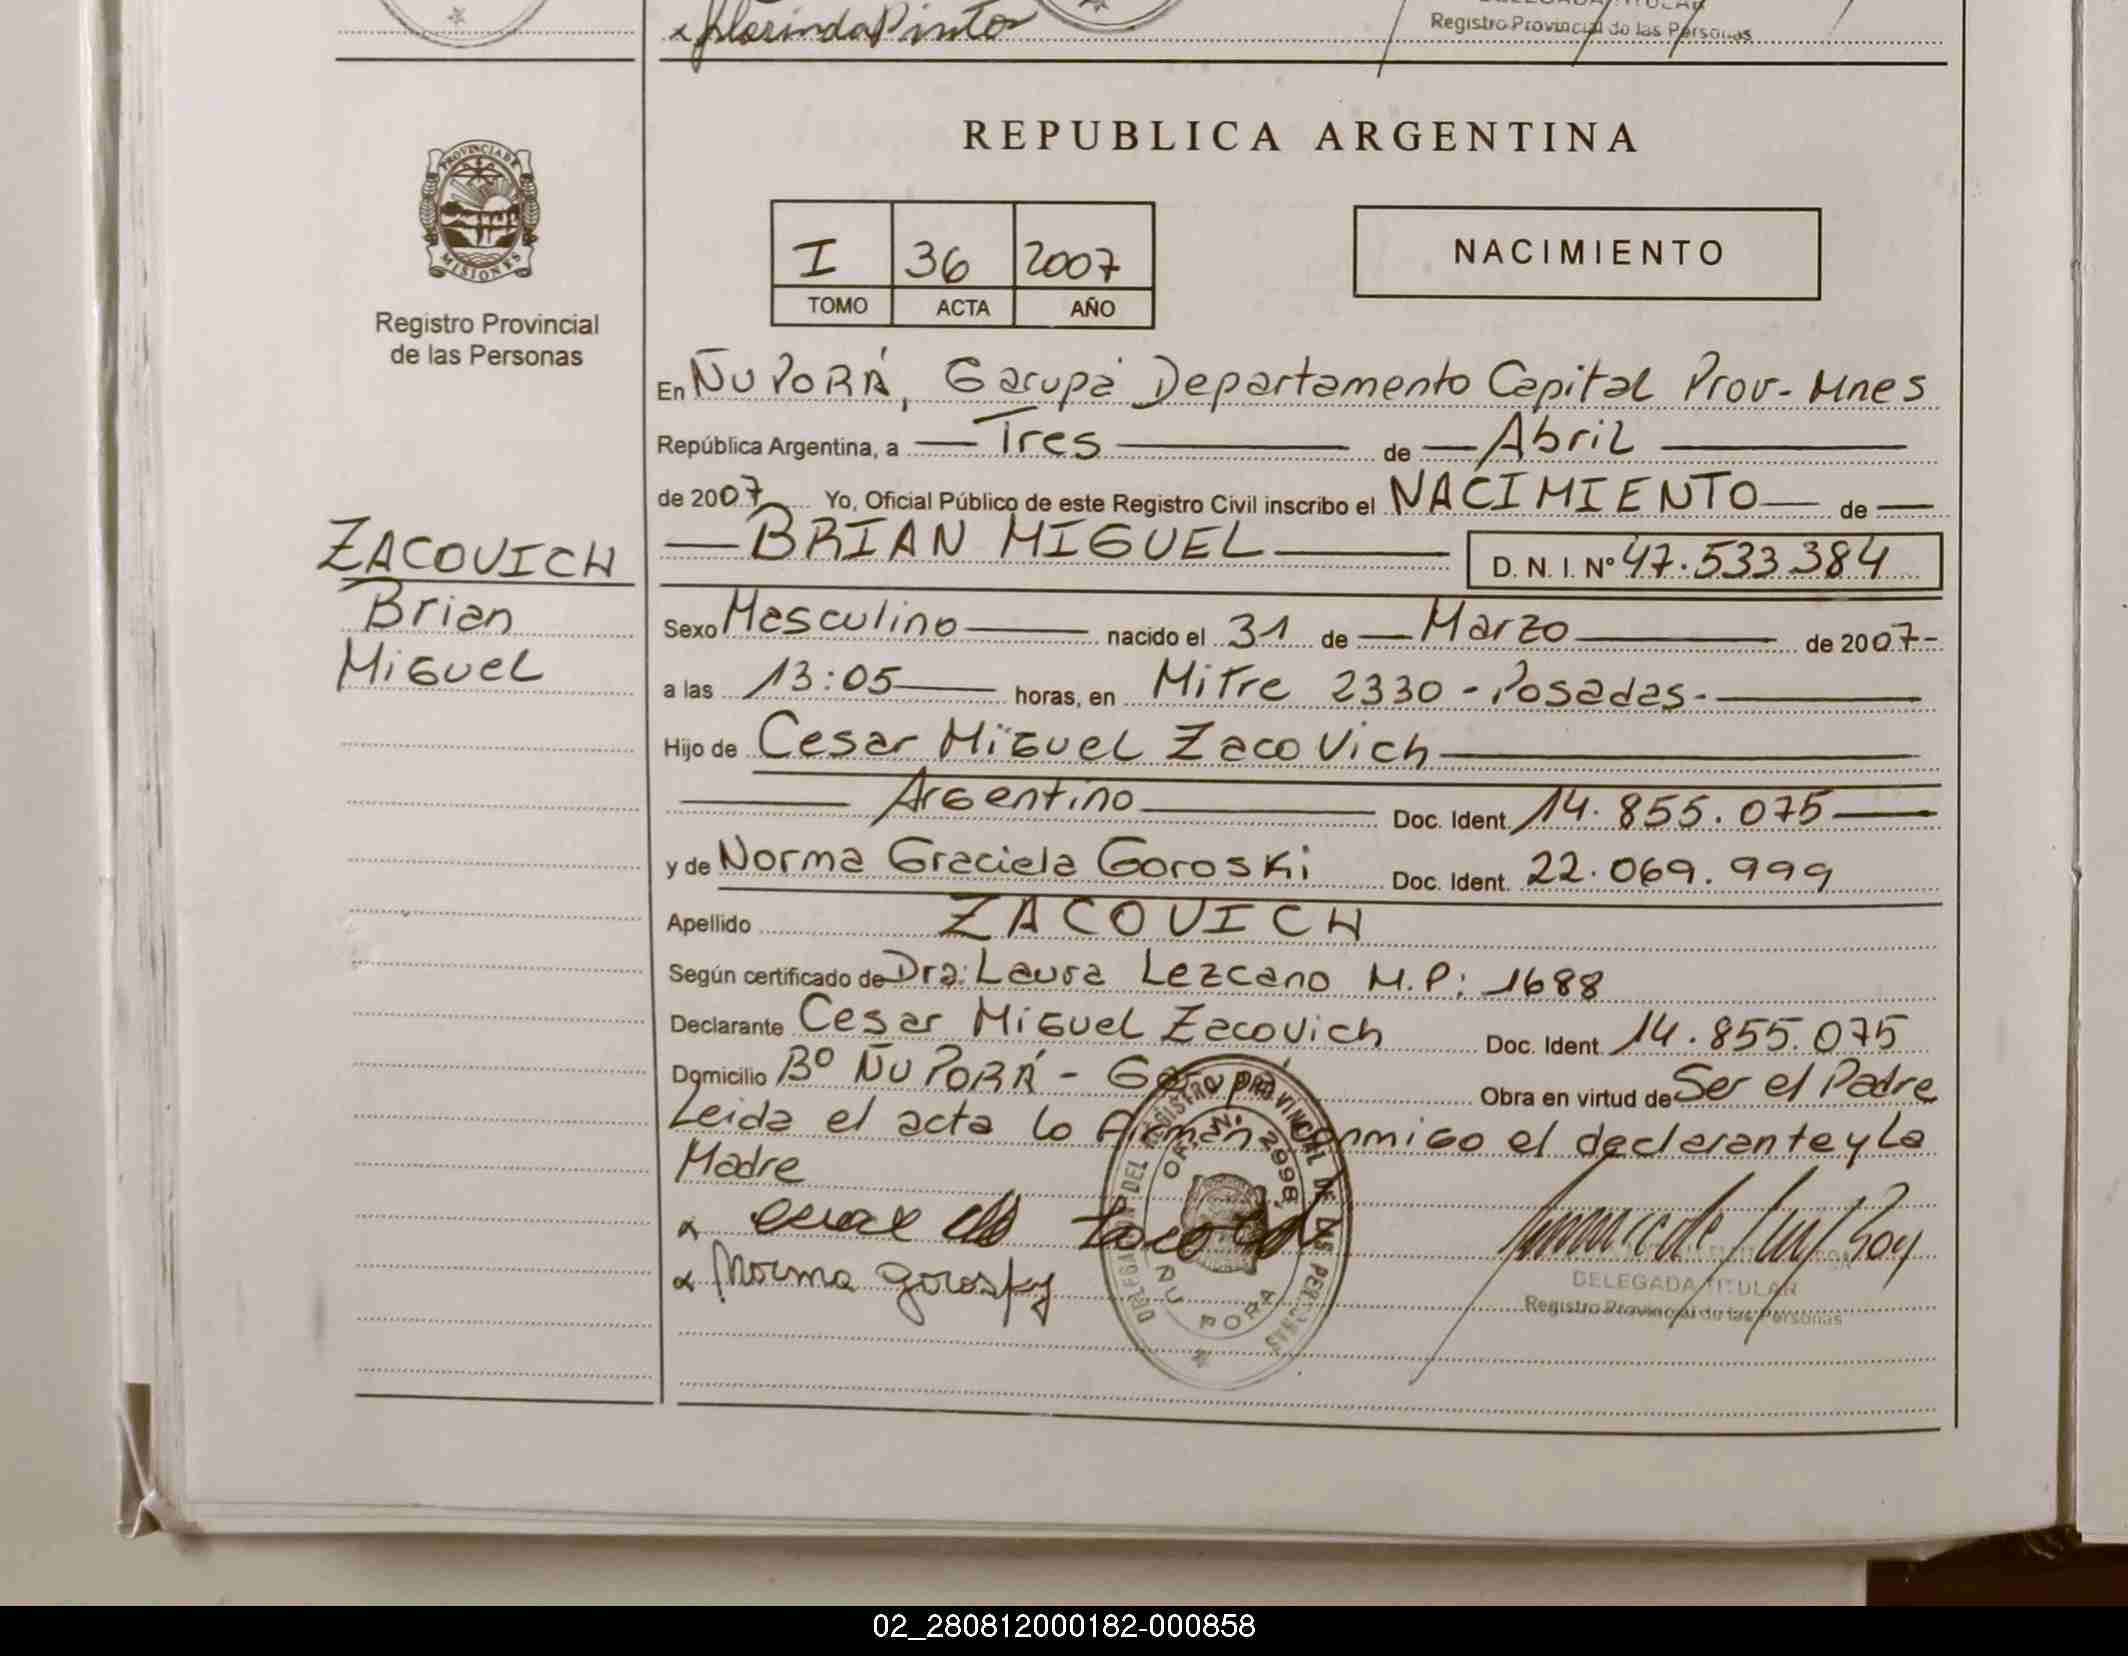 x Florinda Pinto
Registro Provincial de las Personas
REPUBLICA ARGENTINA
PROVINCIA DE
MISIONES
Registro Provincial
de las Personas
I 36 2007
TOMO ACTA AÑO
NACIMIENTO
En ÑU PORÁ, Garupá Departamento Capital Prov- Mnes
República Argentina, a Tres de Abril
de 2007 Yo, Oficial Público de este Registro Civil inscribo el NACIMIENTO de
BRIAN MIGUEL D. N. I. Nº 47.533.384
ZACOVICH
Brian
Miguel
Sexo Masculino nacido el 31 de Marzo de 2007-
a las 13:05 horas, en Mitre 2330 - Posadas-
Hijo de Cesar Miguel Zacovich
Argentino Doc. Ident. 14.855.075
y de Norma Graciela Goroski Doc. Ident. 22.069.999
Apellido ZACOVICH
Según certificado de Dra: Laura Lezcano M.P: 1688
Declarante Cesar Miguel Zacovich Doc. Ident. 14.855.075
Domicilio Bº ÑU PORÁ - Obra en virtud de Ser el Padre
Leida el acta lo Firman conmigo el declarante y La
Madre
x
x Norma Gorosky
DELEGACION DEL REGISTRO PROVINCIAL DE LAS PERSONAS
OF. Nº 2998
ÑU PORA
DELEGADA TITULAR
Registro Provincial de las Personas
02_280812000182-000858